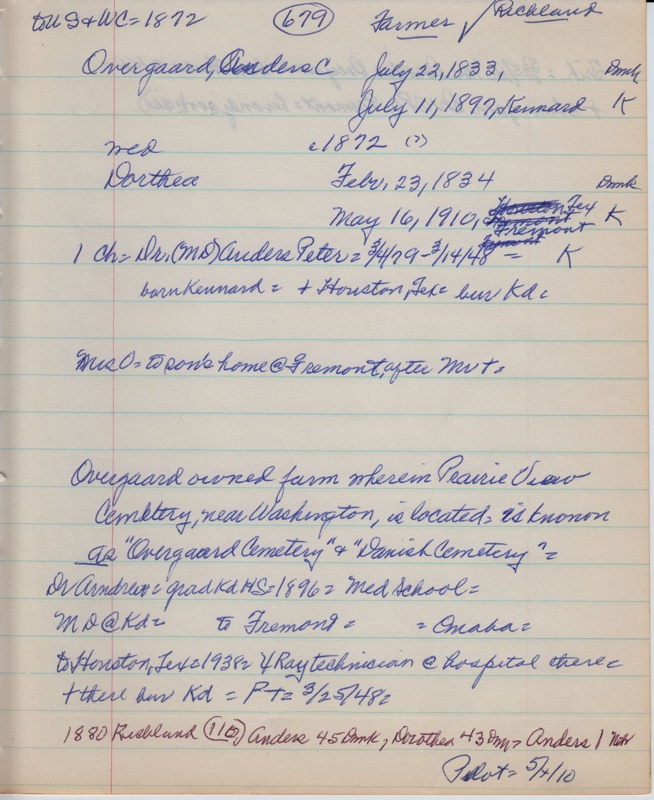 to US & WC = 1872 679 Farmer √ Richland
Overgaard, Anders C July 22, 1833, Dmk
July 11, 1897, Kennard K
wed c1872 (?)
Dorthea Febr. 23, 1834 Dmk
May 16, 1910, Fremont K
1 ch = Dr. (MD) Anders Peter = 3/4/79 - 3/14/48 = K
born Kennard = + Houston, Tex = bur Kd =
Mrs O = to son's home @ Fremont, after Mr + =
Overgaard owned farm wherein Prairie View
Cemetery, near Washington, is located = is known
as "Overgaard Cemetery" & "Danish Cemetery" =
Dr = grad Kd HS = 1896 = Med School =
MD @ Kd = to Fremont = = Omaha =
to Houston, Tex = 1938 = X Ray technician @ hospital there =
+ there bur Kd = P + = 3/25/48 =
1880 Richland (110) Anders 45 Dmk, Dorothea 43 Dm = Anders 1 Nebr
Pilot = 5/4/10